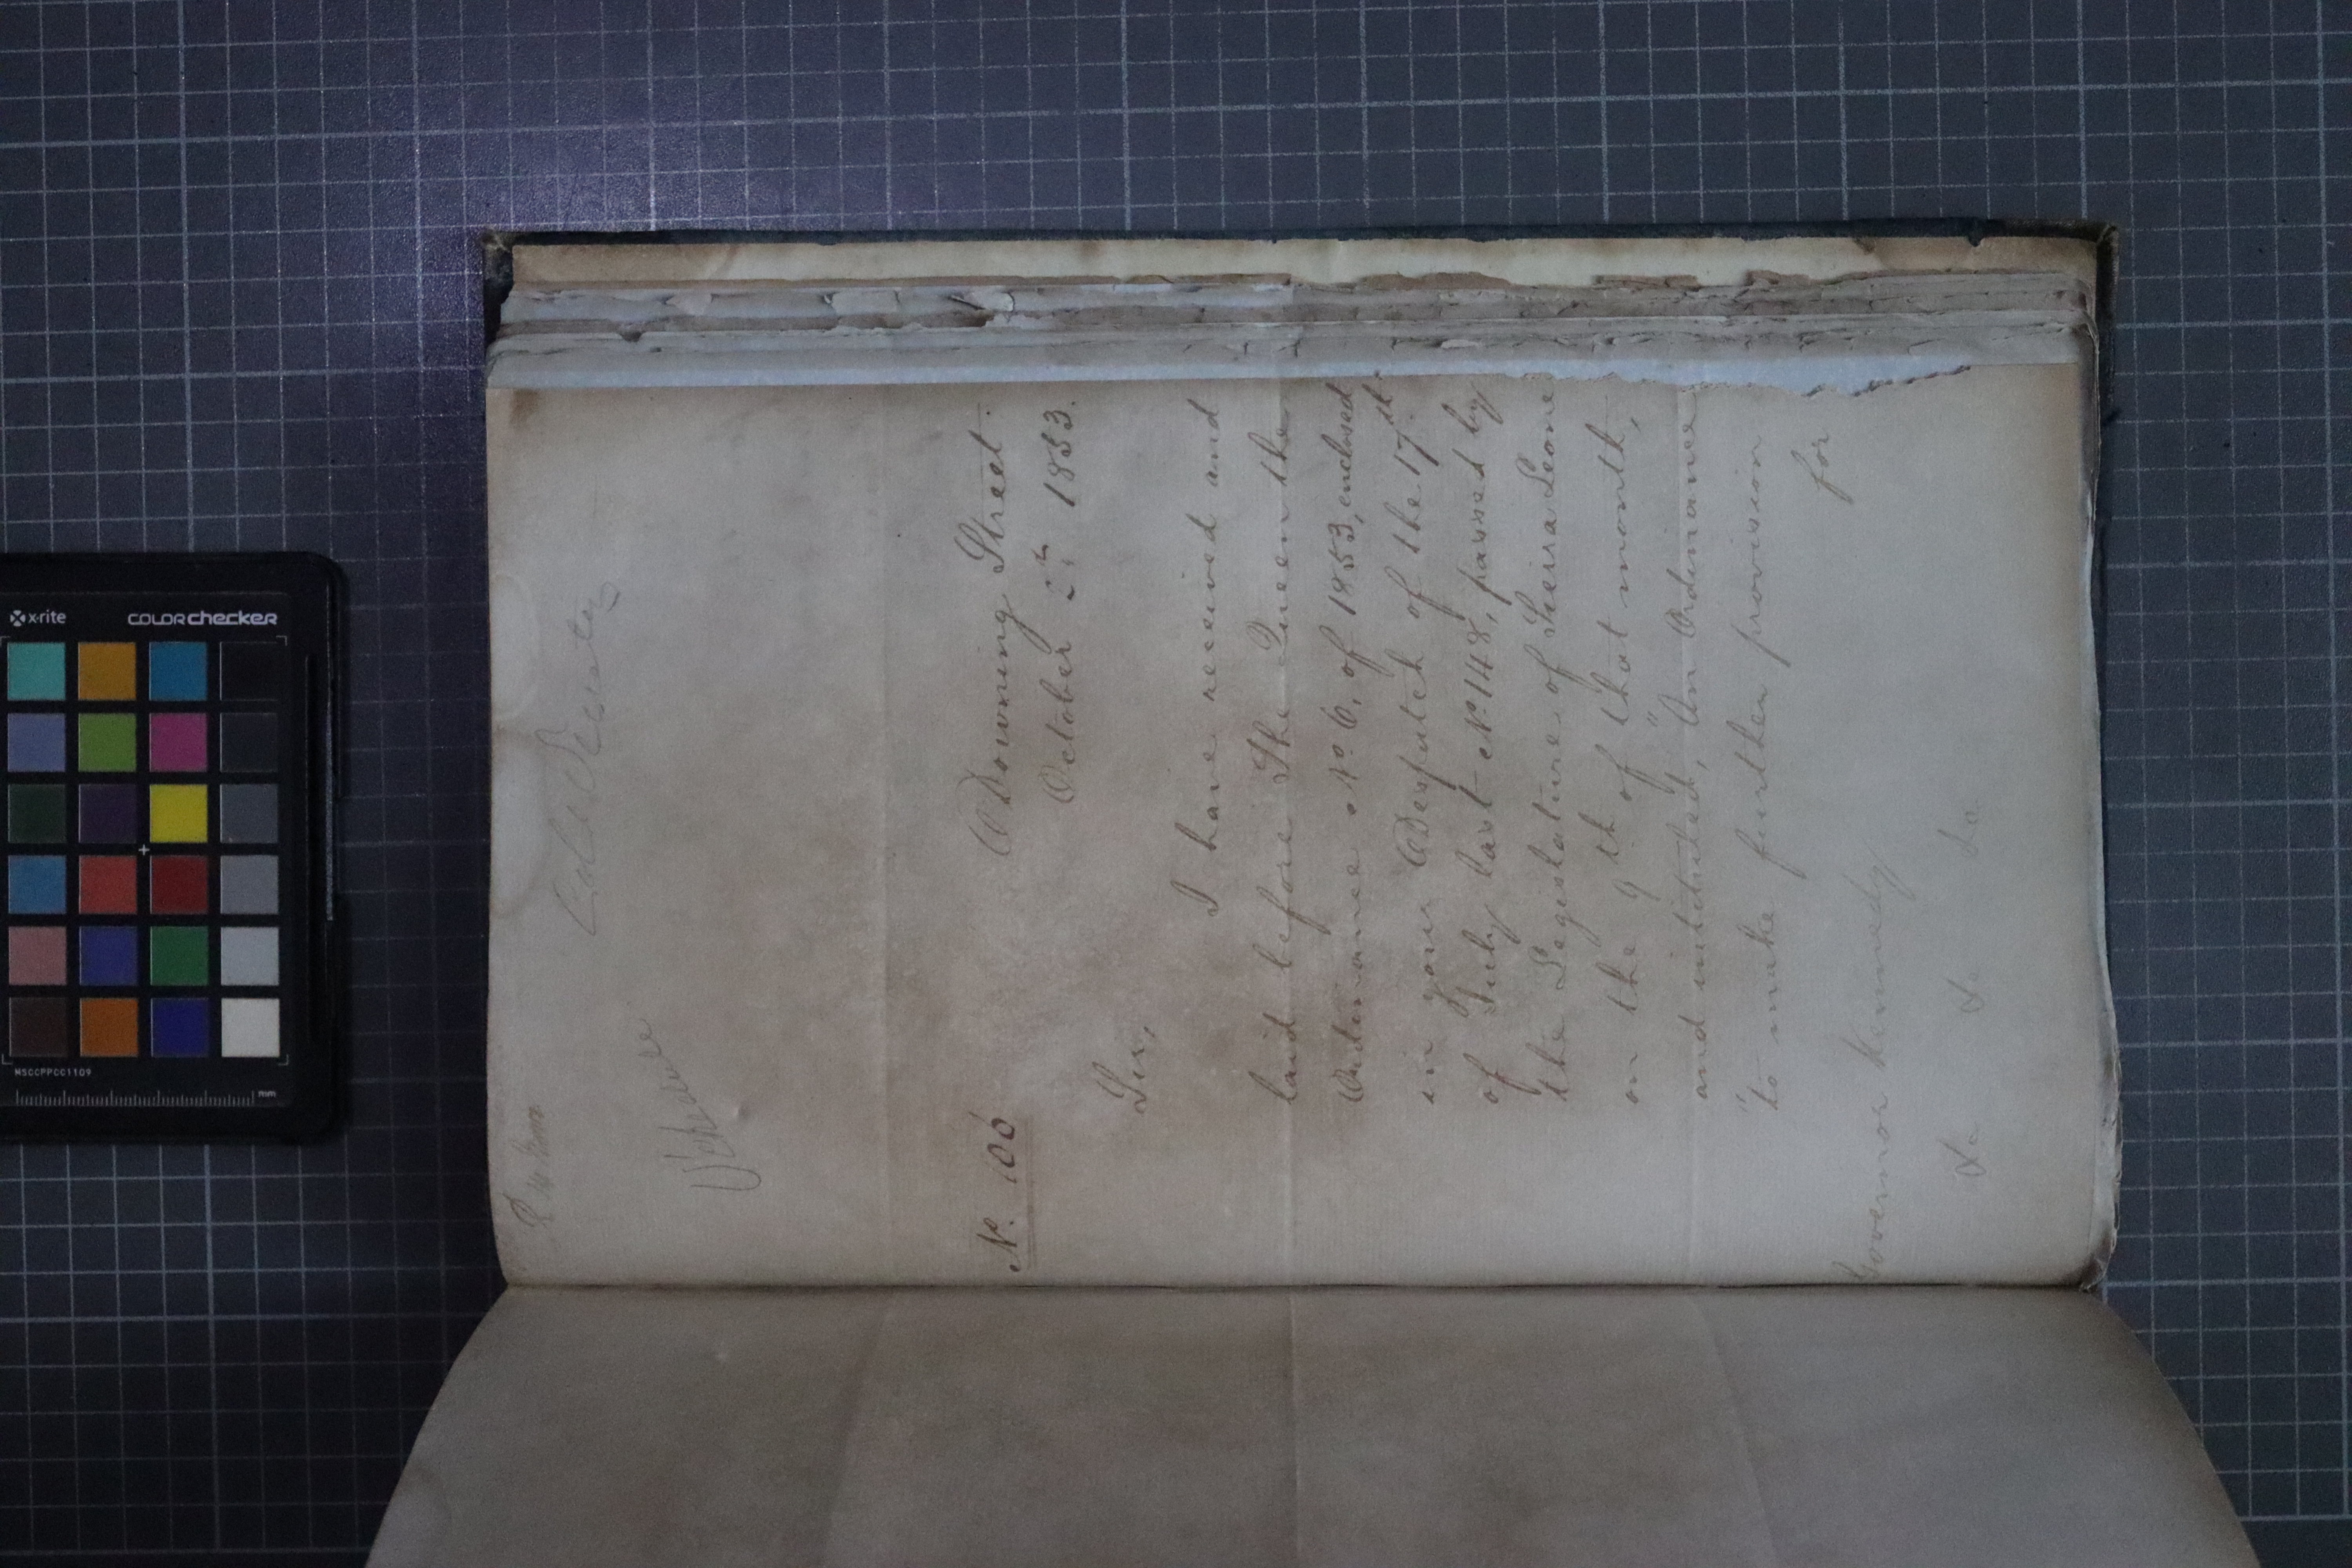 Colo Secretary
No. 106
Downing Street
October 2d 1853.
Sir,
I have received and
laid before The Queen the
Ordinance No. 6, of 1853, enclosed
in your Despatch of the 17th
of July last No. 148, passed by
the Legislature of Sierra Leone
on the 9th of that month,
and intituled, "An Ordinance
"to make further provision
for
Governor Kennedy
&c &c &c
x-rite
colorchecker
MSCCPPCC1109
mm